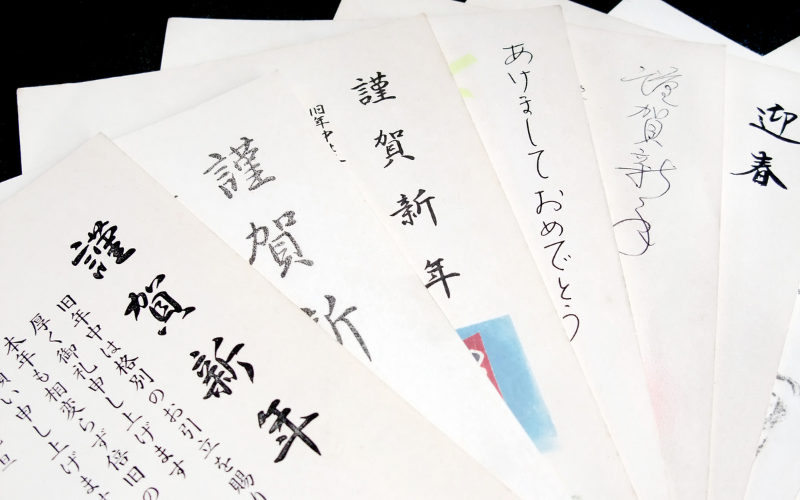 謹賀新年
旧年中は格別のお引立を賜り
厚く御礼申し上げます
本年も相変らず倍旧の
願い申し上げます
旦
謹賀新
謹賀新年
旧年中
あけましておめでとう
謹賀新年
迎春